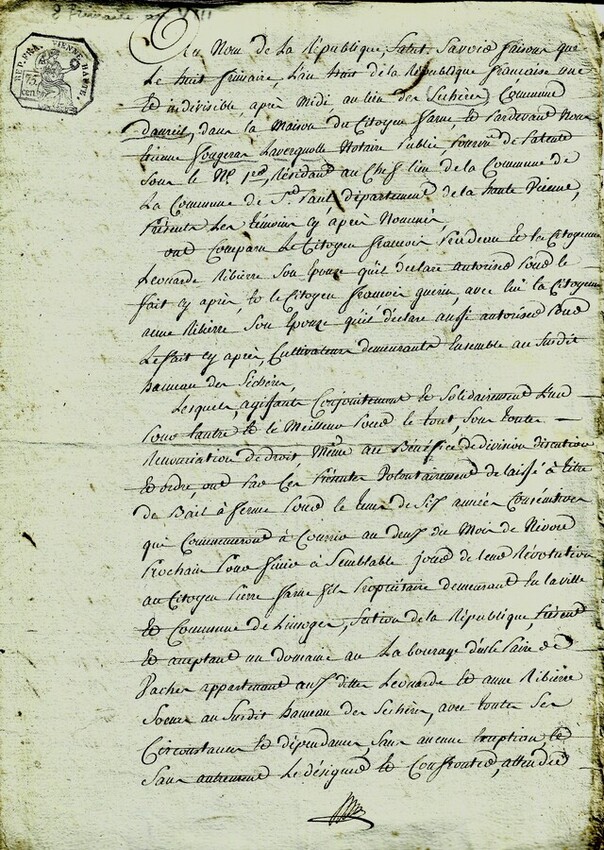 8 frimaire an VIII
REP. FRA. VIENNE HAUTE
75 cen
Au Nom de la République, Salut, Savoir faisons que
Le huit frimaire, L'an huit de la République française une
et indivisible, après midi au lieu des Sechères Commune
daureil, dans la Maison du Citoyen farne, et Pardevant Nous
fougeras Lavergnolle Notaire Public, pourvu de Patente
Sous le No. 1er, Résidant au Chef lieu de la Commune de
La Commune de St. Paul, département de la haute Vienne,
Présents Les témoins cy après Nommés,
ont Comparu Le Citoyen françois et la Citoyenne
Leonarde Ribière Son Epouse qu'il déclare autoriser pour le
fait cy après, et le Citoyen françois guerin, avec lui la Citoyenne
anne Ribière Son Epouse qu'il déclare aussi autoriser Pour
Le fait cy après, Cultivateurs demeurants Ensemble au Susdit
hameau des Séchères,
Lesquels, agissants Conjointement et Solidairement L'un
pour l'autre et le Meilleur pour le tout, Sous toute
Renonciation de droit, Même au Bénéfice de division discution
et ordre, ont Par Ces Présentes Volontairement delaissé à titre
de Bail à ferme pour le tems de Six années Consécutives
qui Commenceront à Courrir au deux du Mois de Nivose
Prochain pour finir à Semblable jour de leur Révolution
au Citoyen Pierre farne fils Propriétaire demeurant En la ville
et Commune de Limoges, Section de la République, Présent
et acceptant un domaine au Labourage de
Vaches appartenant aux dittes Leonarde et anne Ribière
Soeurs au Susdit hameau des Séchères, avec toutes Ses
Circonstances et dépendances, Sans aucune Exeption et
Sans autrement Le désigner et Confronter, attendu